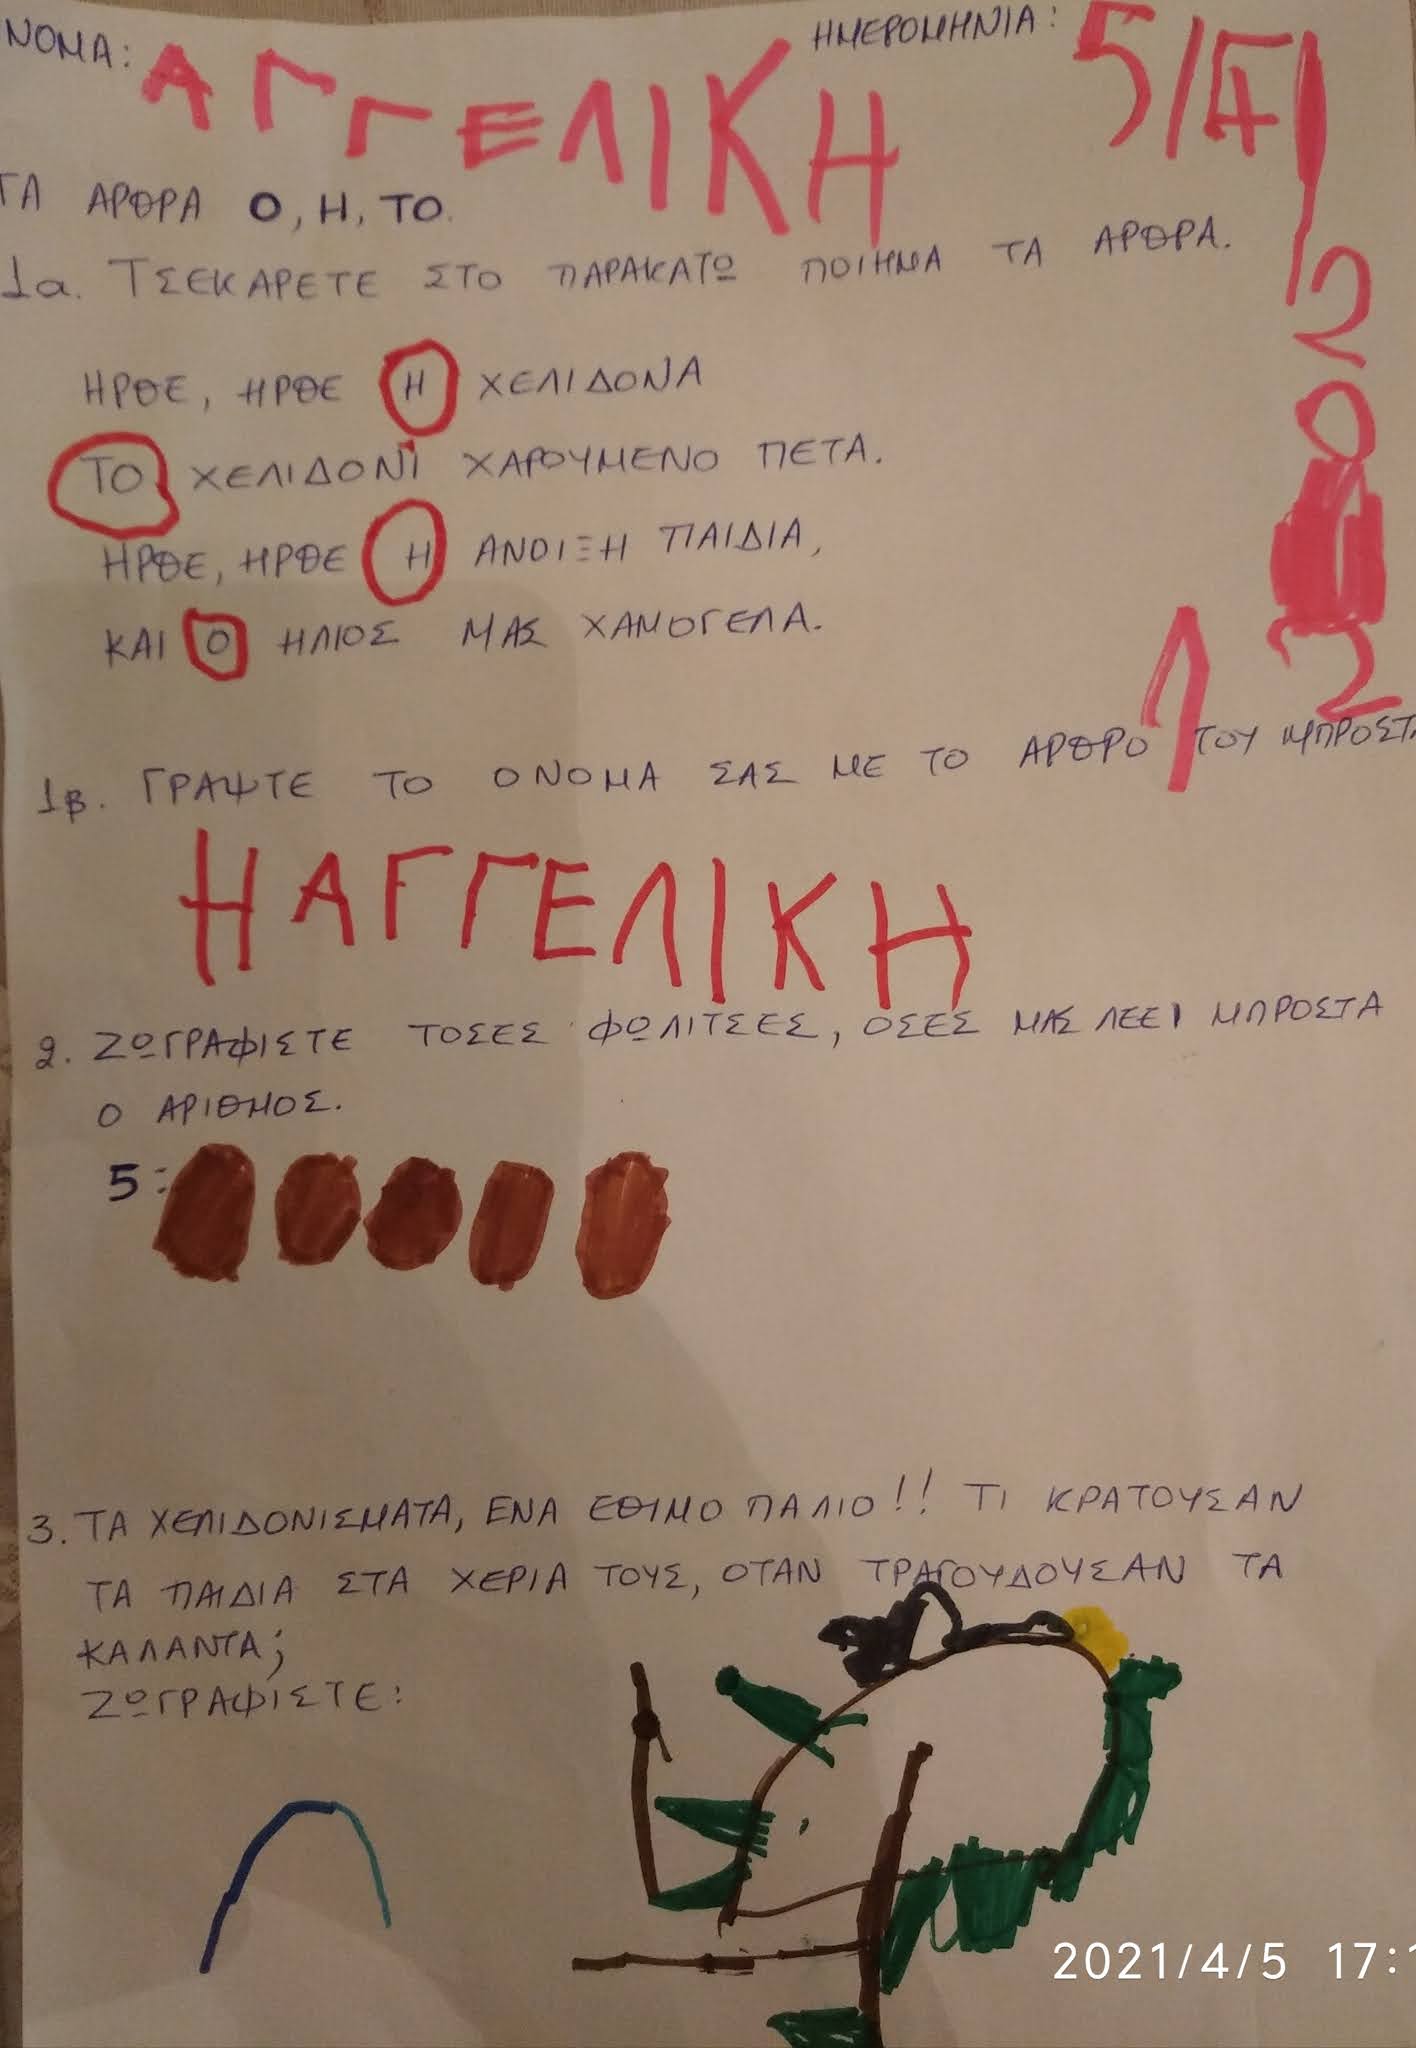 ΝΟΜΑ: ΑΓΓΕΛΙΚΗ ΗΜΕΡΟΜΗΝΙΑ: 5/4/2021
ΤΑ ΑΡΘΡΑ Ο, Η, ΤΟ.
1α. ΤΣΕΚΑΡΕΤΕ ΣΤΟ ΠΑΡΑΚΑΤΩ ΠΟΙΗΜΑ ΤΑ ΑΡΘΡΑ.
ΗΡΘΕ, ΗΡΘΕ Η ΧΕΛΙΔΟΝΑ
ΤΟ ΧΕΛΙΔΟΝΙ ΧΑΡΟΥΜΕΝΟ ΠΕΤΑ.
ΗΡΘΕ, ΗΡΘΕ Η ΑΝΟΙΞΗ ΠΑΙΔΙΑ,
ΚΑΙ Ο ΗΛΙΟΣ ΜΑΣ ΧΑΜΟΓΕΛΑ.
1β. ΓΡΑΨΤΕ ΤΟ ΟΝΟΜΑ ΣΑΣ ΜΕ ΤΟ ΑΡΘΡΟ ΤΟΥ ΜΠΡΟΣΤΑ
Η ΑΓΓΕΛΙΚΗ
2. ΖΩΓΡΑΦΙΣΤΕ ΤΟΣΕΣ ΦΩΛΙΤΣΕΣ, ΟΣΕΣ ΜΑΣ ΛΕΕΙ ΜΠΡΟΣΤΑ
Ο ΑΡΙΘΜΟΣ.
5:
3. ΤΑ ΧΕΛΙΔΟΝΙΣΜΑΤΑ, ΕΝΑ ΕΘΙΜΟ ΠΑΛΙΟ!! ΤΙ ΚΡΑΤΟΥΣΑΝ
ΤΑ ΠΑΙΔΙΑ ΣΤΑ ΧΕΡΙΑ ΤΟΥΣ, ΟΤΑΝ ΤΡΑΓΟΥΔΟΥΣΑΝ ΤΑ
ΚΑΛΑΝΤΑ;
ΖΩΓΡΑΦΙΣΤΕ:
2021/4/5 17:1